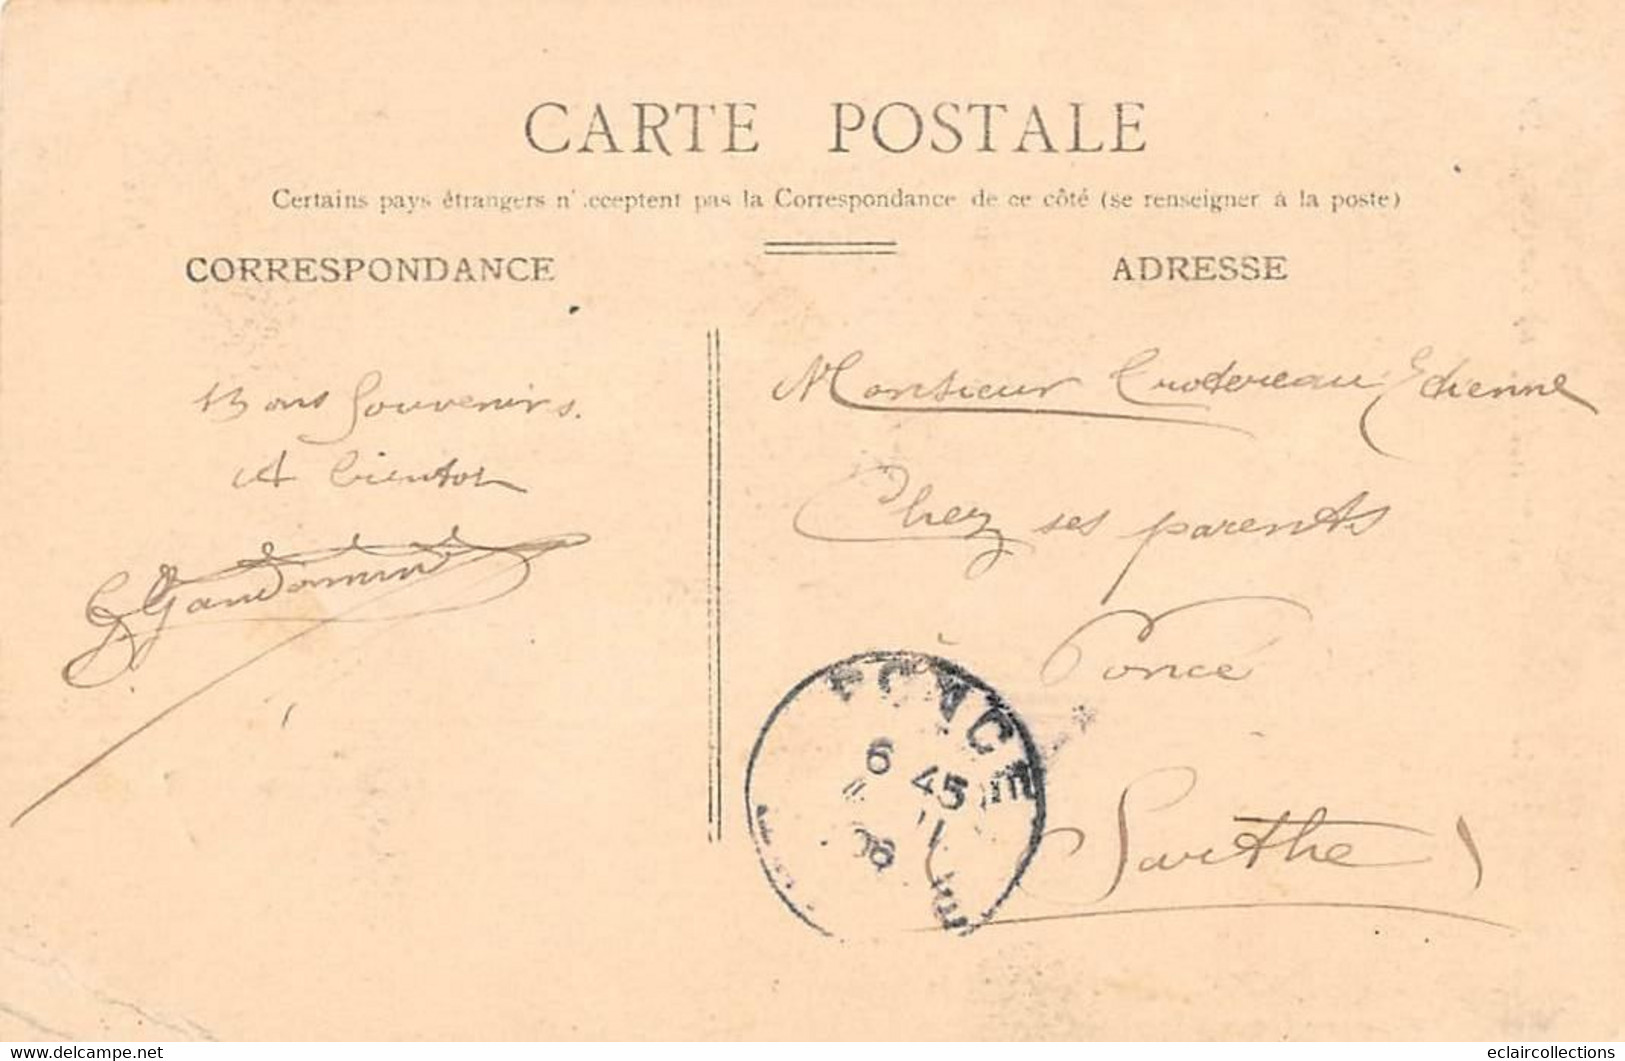 CARTE POSTALE
Certains pays étrangers n'acceptent pas la Correspondance de ce côté (se renseigner à la poste)
CORRESPONDANCE
ADRESSE
Bons Souvenirs.
A bientot
Monsieur Etienne
Chez ses parents
à Poncé
Sarthe
PONCE
6 45
06
www.delcampe.net
eclaircollections